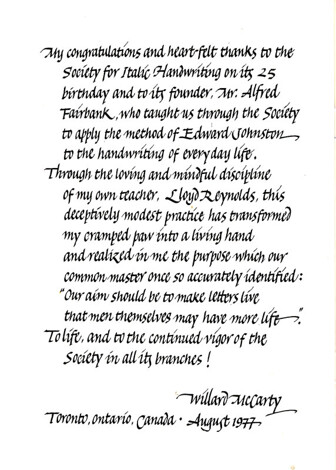 My congratulations and heart-felt thanks to the
Society for Italic Handwriting on its 25
birthday and to its founder, Mr. Alfred
Fairbank, who taught us through the Society
to apply the method of Edward Johnston
to the handwriting of everyday life.
Through the loving and mindful discipline
of my own teacher, Lloyd Reynolds, this
deceptively modest practice has transformed
my cramped paw into a living hand
and realized in me the purpose which our
common master once so accurately identified:
"Our aim should be to make letters live
that men themselves may have more life".
To life, and to the continued vigor of the
Society in all its branches!
Willard McCarty
Toronto, Ontario, Canada · August 1977